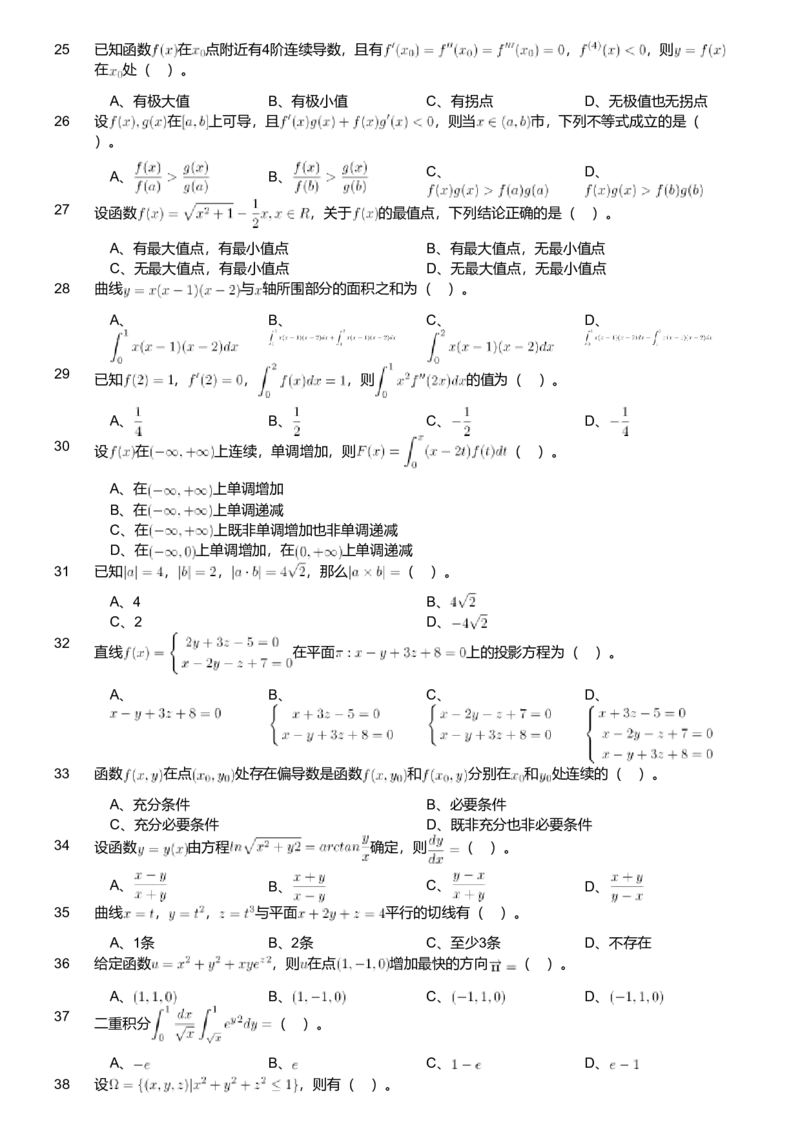 25 已知函数f(x)在x₀点附近有4阶连续导数，且有f′(x₀) = f″(x₀) = f‴(x₀) = 0，f⁽⁴⁾(x) < 0，则y = f(x)
在x₀处（ ）。
A、有极大值 B、有极小值 C、有拐点 D、无极值也无拐点
26 设f(x), g(x)在[a, b]上可导，且f′(x)g(x) + f(x)g′(x) < 0，则当x ∈ (a, b)市，下列不等式成立的是（
）。
A、f(x)/f(a) > g(x)/g(a) B、f(x)/f(b) > g(x)/g(b) C、f(x)g(x) > f(a)g(a) D、f(x)g(x) > f(b)g(b)
27 设函数f(x) = √(x² + 1) − 1/2 x, x ∈ R，关于f(x)的最值点，下列结论正确的是（ ）。
A、有最大值点，有最小值点 B、有最大值点，无最小值点
C、无最大值点，有最小值点 D、无最大值点，无最小值点
28 曲线y = x(x − 1)(x − 2)与x轴所围部分的面积之和为（ ）。
A、∫₀¹ x(x − 1)(x − 2)dx B、∫₀¹ x(x−1)(x−2)dx + ∫₁² x(x−1)(x−2)dx C、∫₀² x(x − 1)(x − 2)dx D、∫₀¹ x(x−1)(x−2)dx − ∫₁² x(x−1)(x−2)dx
29 已知f(2) = 1，f′(2) = 0，∫₀² f(x)dx = 1，则∫₀¹ x²f″(2x)dx的值为（ ）。
A、1/4 B、1/2 C、−1/2 D、−1/4
30 设f(x)在(−∞, +∞)上连续，单调增加，则F(x) = ∫₀ˣ (x − 2t)f(t)dt（ ）。
A、在(−∞, +∞)上单调增加
B、在(−∞, +∞)上单调递减
C、在(−∞, +∞)上既非单调增加也非单调递减
D、在(−∞, 0)上单调增加，在(0, +∞)上单调递减
31 已知|a| = 4，|b| = 2，|a · b| = 4√2，那么|a × b| =（ ）。
A、4 B、4√2
C、2 D、−4√2
32 直线f(x) = { 2y + 3z − 5 = 0 x − 2y − z + 7 = 0 在平面π : x − y + 3z + 8 = 0上的投影方程为（ ）。
A、x − y + 3z + 8 = 0 B、{ x + 3z − 5 = 0 x − y + 3z + 8 = 0 C、{ x − 2y − z + 7 = 0 x − y + 3z + 8 = 0 D、{ x + 3z − 5 = 0 x − 2y − z + 7 = 0 x − y + 3z + 8 = 0
33 函数f(x, y)在点(x₀, y₀)处存在偏导数是函数f(x, y₀)和f(x₀, y)分别在x₀和y₀处连续的（ ）。
A、充分条件 B、必要条件
C、充分必要条件 D、既非充分也非必要条件
34 设函数y = y(x)由方程ln√(x² + y2) = arctan y/x 确定，则dy/dx =（ ）。
A、(x − y)/(x + y) B、(x + y)/(x − y) C、(y − x)/(x + y) D、(x + y)/(y − x)
35 曲线x = t，y = t²，z = t³与平面x + 2y + z = 4平行的切线有（ ）。
A、1条 B、2条 C、至少3条 D、不存在
36 给定函数u = x² + y² + xye^z2，则u在点(1, −1, 0)增加最快的方向n⃗ =（ ）。
A、(1, 1, 0) B、(1, −1, 0) C、(−1, 1, 0) D、(−1, 1, 0)
37 二重积分∫₀¹ dx/√x ∫_√x^1 e^y2 dy =（ ）。
A、−e B、e C、1 − e D、e − 1
38 设Ω = {(x, y, z)|x² + y² + z² ≤ 1}，则有（ ）。